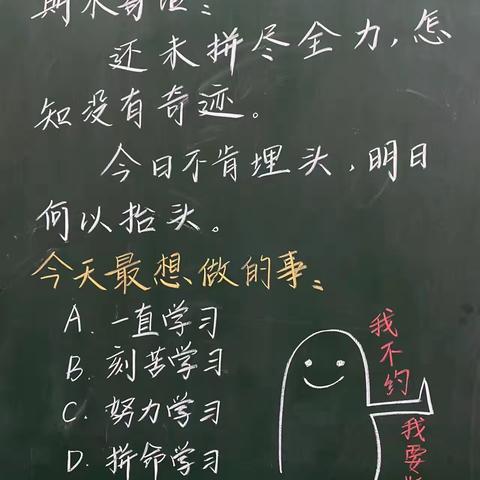 期末寄语：
还未拼尽全力，怎
知没有奇迹。
今日不肯埋头，明日
何以抬头。
今天最想做的事：
A. 一直学习
B. 刻苦学习
C. 努力学习
D. 拼命学习
我不约
我要